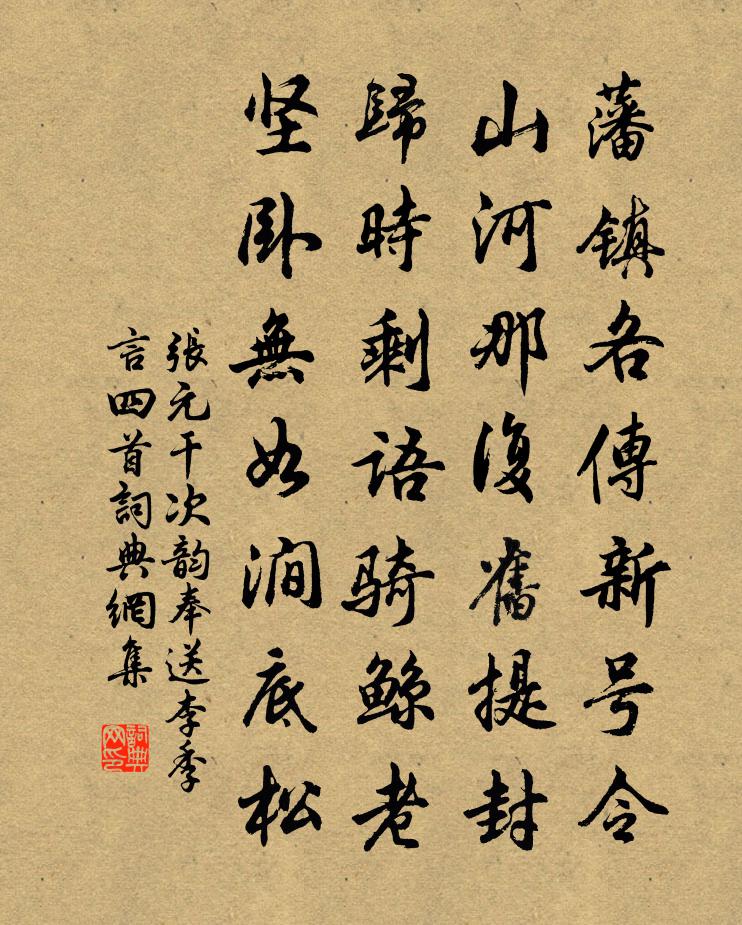 藩镇各傳新号令
山河那復舊提封
歸時剩語骑鲸老
坚卧無如涧底松
張元干次韵奉送李季
言四首詞典網集
詞典
网印